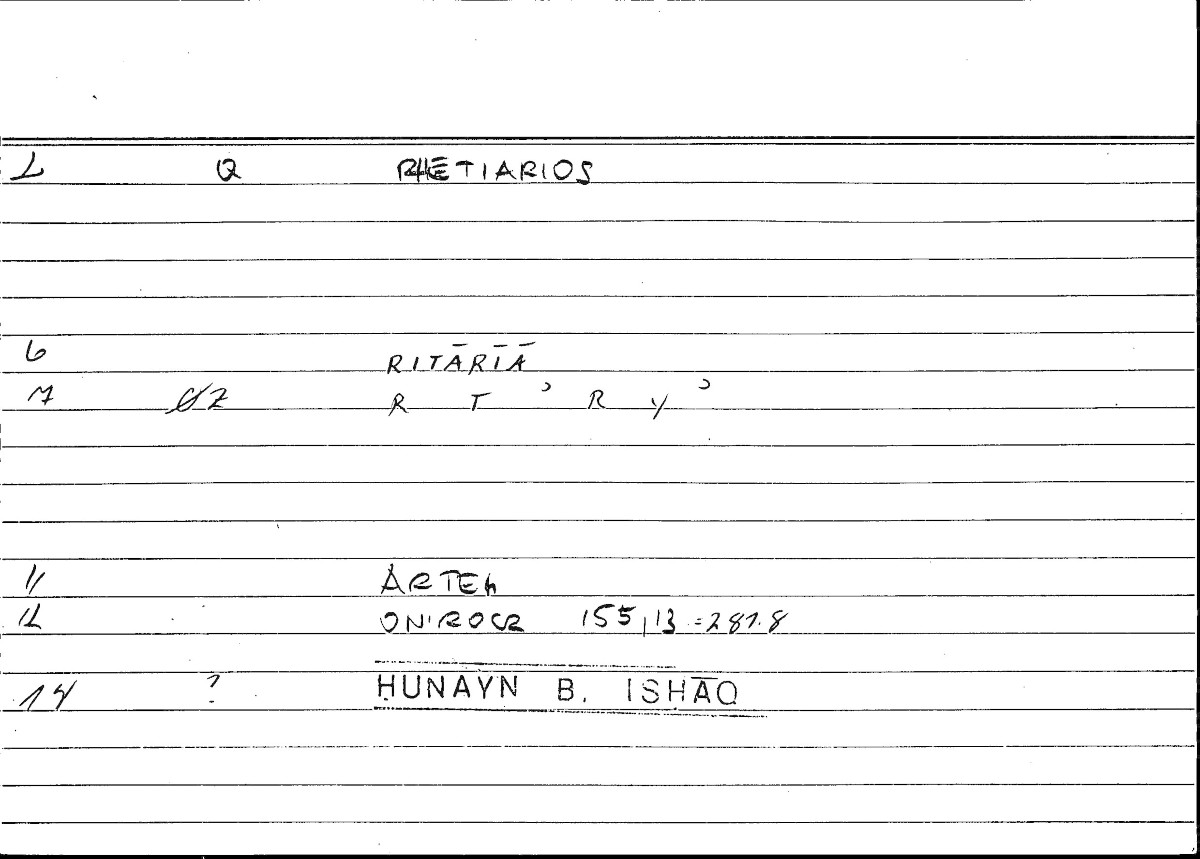 L Q RHĒTIARIOS
6 RITĀRĪĀ
7 02 R T ʾ R Y ʾ
11 ARTEM
12 ONIROCR 155,13 = 287.8
14 ? ḤUNAYN B. ISḤĀQ